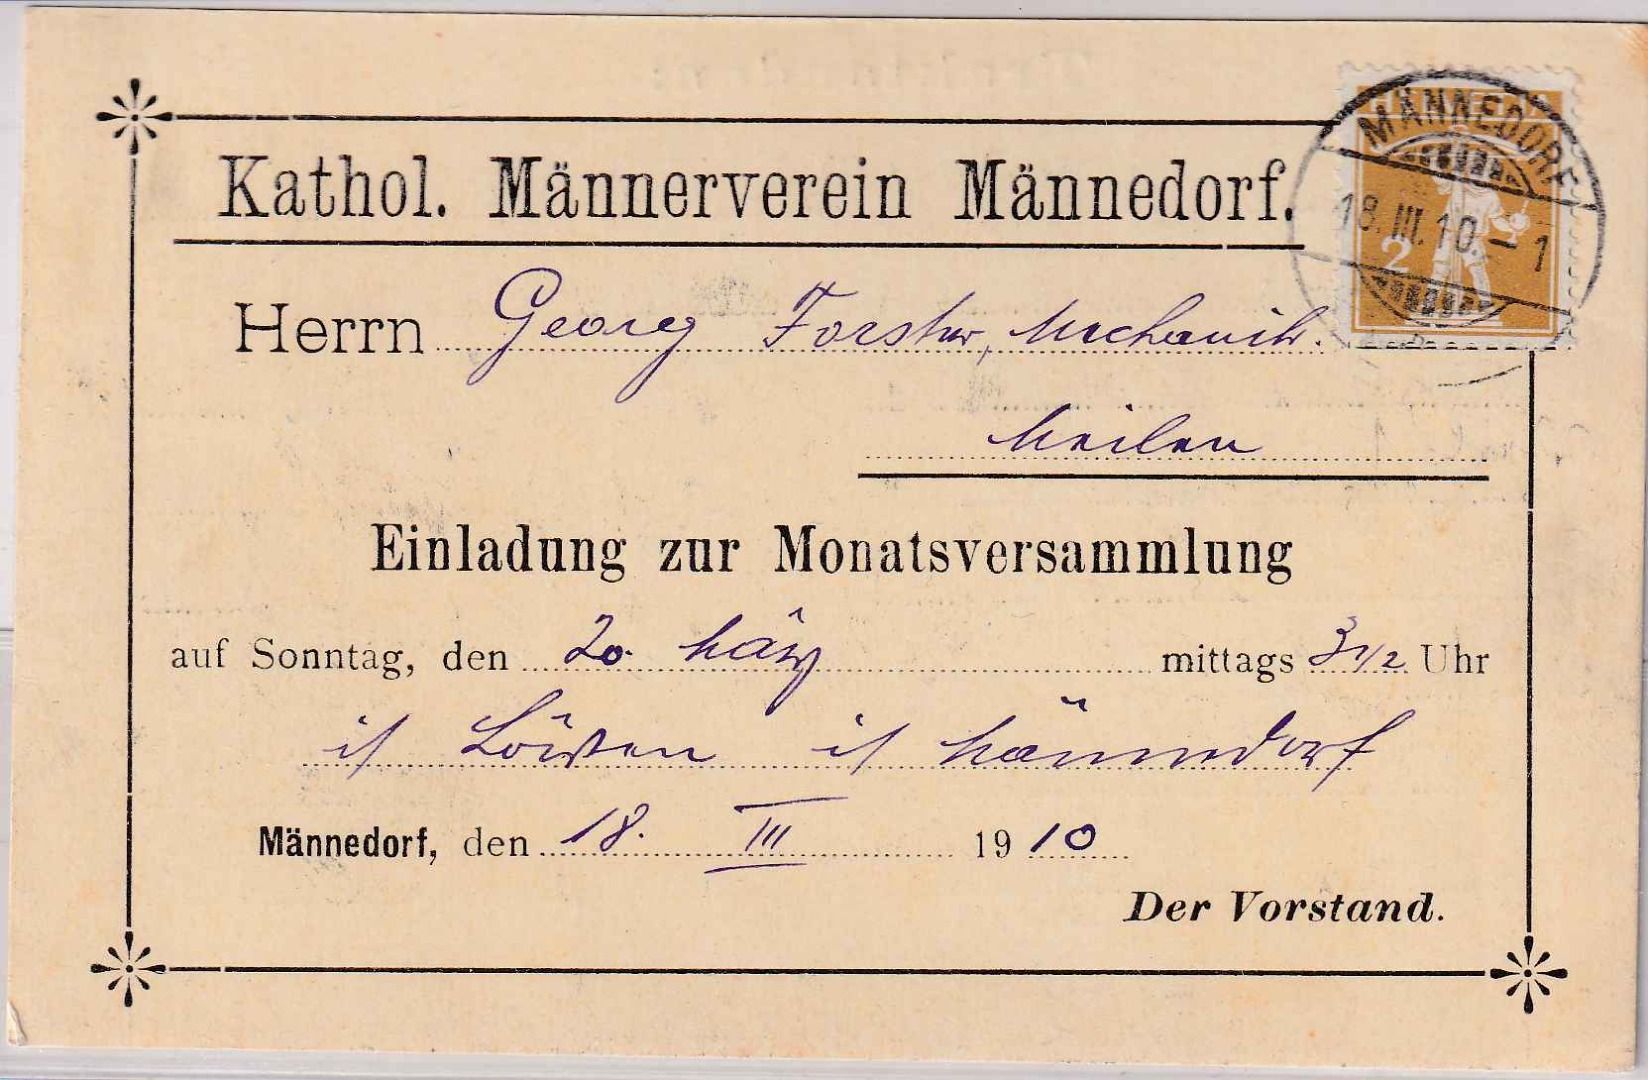 Kathol. Männerverein Männedorf.
HELVETIA
MÄNNEDORF
18.III.10.–1
2
Herrn Georg Forster, Mechanik.
Meilen
Einladung zur Monatsversammlung
auf Sonntag, den 20. März mittags 3 1/2 Uhr
Löwen Männedorf
Männedorf, den 18. III 1910
Der Vorstand.